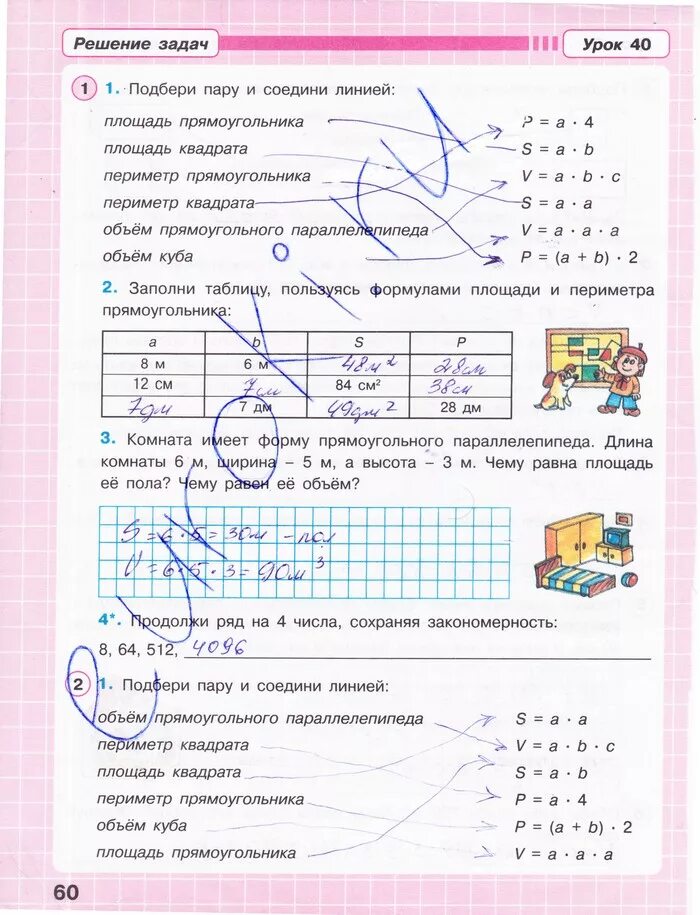 Решение задач
Урок 40
1
1. Подбери пару и соедини линией:
площадь прямоугольника P = a · 4
площадь квадрата S = a · b
периметр прямоугольника V = a · b · c
периметр квадрата S = a · a
объём прямоугольного параллелепипеда V = a · a · a
объём куба P = (a + b) · 2
2. Заполни таблицу, пользуясь формулами площади и периметра
прямоугольника:
a b S P
8 м 6 м 48м² 28см
12 см 7см 84 см² 38см
7дм 7 дм 49дм² 28 дм
3. Комната имеет форму прямоугольного параллелепипеда. Длина
комнаты 6 м, ширина – 5 м, а высота – 3 м. Чему равна площадь
её пола? Чему равен её объём?
S = 6 · 5 = 30м – пол
V = 6 · 5 · 3 = 90м³
4*. Продолжи ряд на 4 числа, сохраняя закономерность:
8, 64, 512, 4096
2
1. Подбери пару и соедини линией:
объём прямоугольного параллелепипеда S = a · a
периметр квадрата V = a · b · c
площадь квадрата S = a · b
периметр прямоугольника P = a · 4
объём куба P = (a + b) · 2
площадь прямоугольника V = a · a · a
60